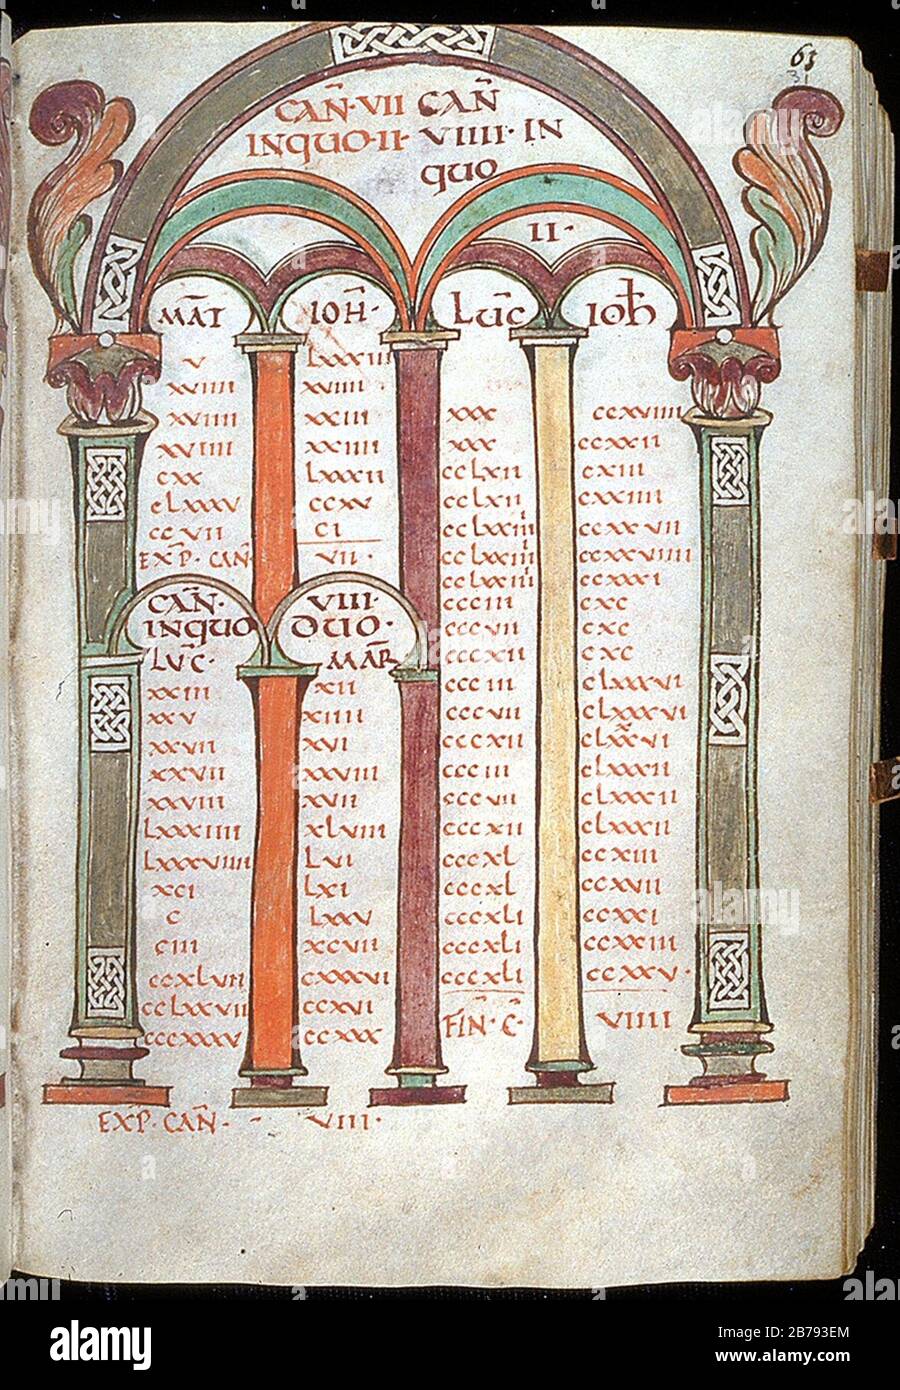 63
31
CAÑ·VII CAÑ
INQUO·II· VIIII·IN
QUO
II·
MAT̄ IOH̄· LUC̄ IOH̄
V LXXXIII
XVIIII XVIIII
XVIIII XXIII XXX CCXVIIII
XVIIII XXIIII XXX CCXXII
CXX LXXXII CCLXII CXIII
CLXXXV CCXV CCLXII CXXIIII
CCVII CI CCLXXIIII CCXXVII
EXP̄· CAÑ VII· CCLXXIIII CCXXVIIII
CCLXXIIII CCXXXI
CAÑ· VIII· CCCIII CXC
INQUO DUO· CCCVII CXC
LUC̄· MAR̄ CCCXII CXC
XXIII XII CCCIII CLXXXVI
XXV XIIII CCCVII CLXXXVI
XXVII XVI CCCXII CLXXXVI
XXVII XXVIII CCCIII CLXXXII
XXVIII XVII CCCVII CLXXXII
LXXXIIII XLVIII CCCXII CLXXXII
LXXXVIIII LVI CCCXL CCXIII
XCI LXI CCCXL CCXVII
C LXXV CCCXLI CCXXI
CIII XCVII CCCXLI CCXXIII
CCXLVII CXXXVI CCCXLI CCXXV·
CCLXXVII CCXVI FIÑ· C̄· VIIII
CCCXXXV CCXXX
EXP̄· CAÑ· - VIII·
alamy
Image ID: 2B793EM
www.alamy.com